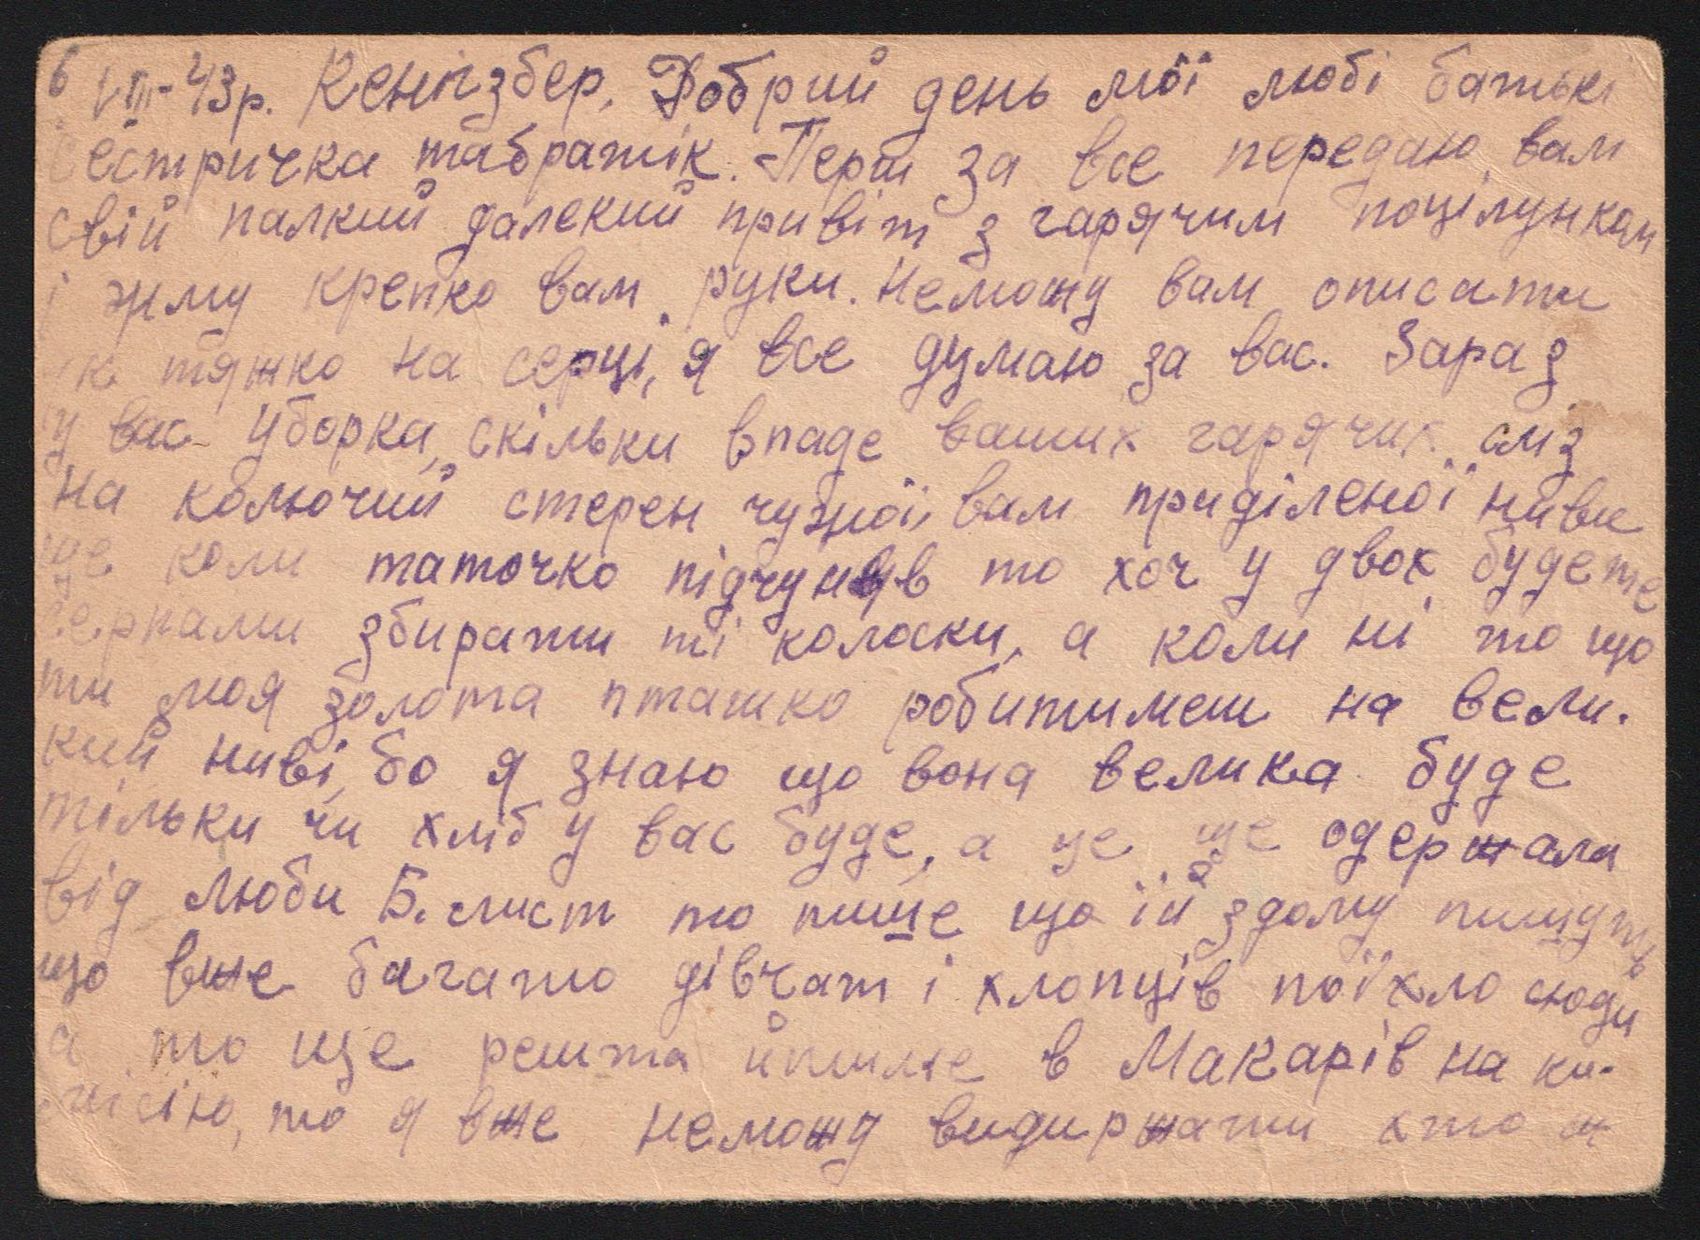 6 VIII-43р. Кенігзбер. Добрий день мої любі батькі
сестричка табратік. Перш за все передаю вам
свій палкий далекий привіт з гарячим поцілунком
і жму крепко вам руки. Неможу вам описати
як тяжко на серці, я все думаю за вас. Зараз
у вас уборка, скільки впаде ваших гарячих сліз
на колючий стерен чужої, вам приділеної ниви
ще коли таточко підчуняв то хоч у двох будете
збирати ті колоски, а коли ні то що
ти моя золота пташко робитимеш на вели-
кий ниві, бо я знаю що вона велика буде
тільки чи хліб у вас буде, а це ще одержала
від Люби Б. лист то пише що їй здому пишуть
що вже багато дівчат і хлопців поїхло сюди
а то ще решта йшле в Макарів на ко-
місію, то я вже неможу видиржати хто ж